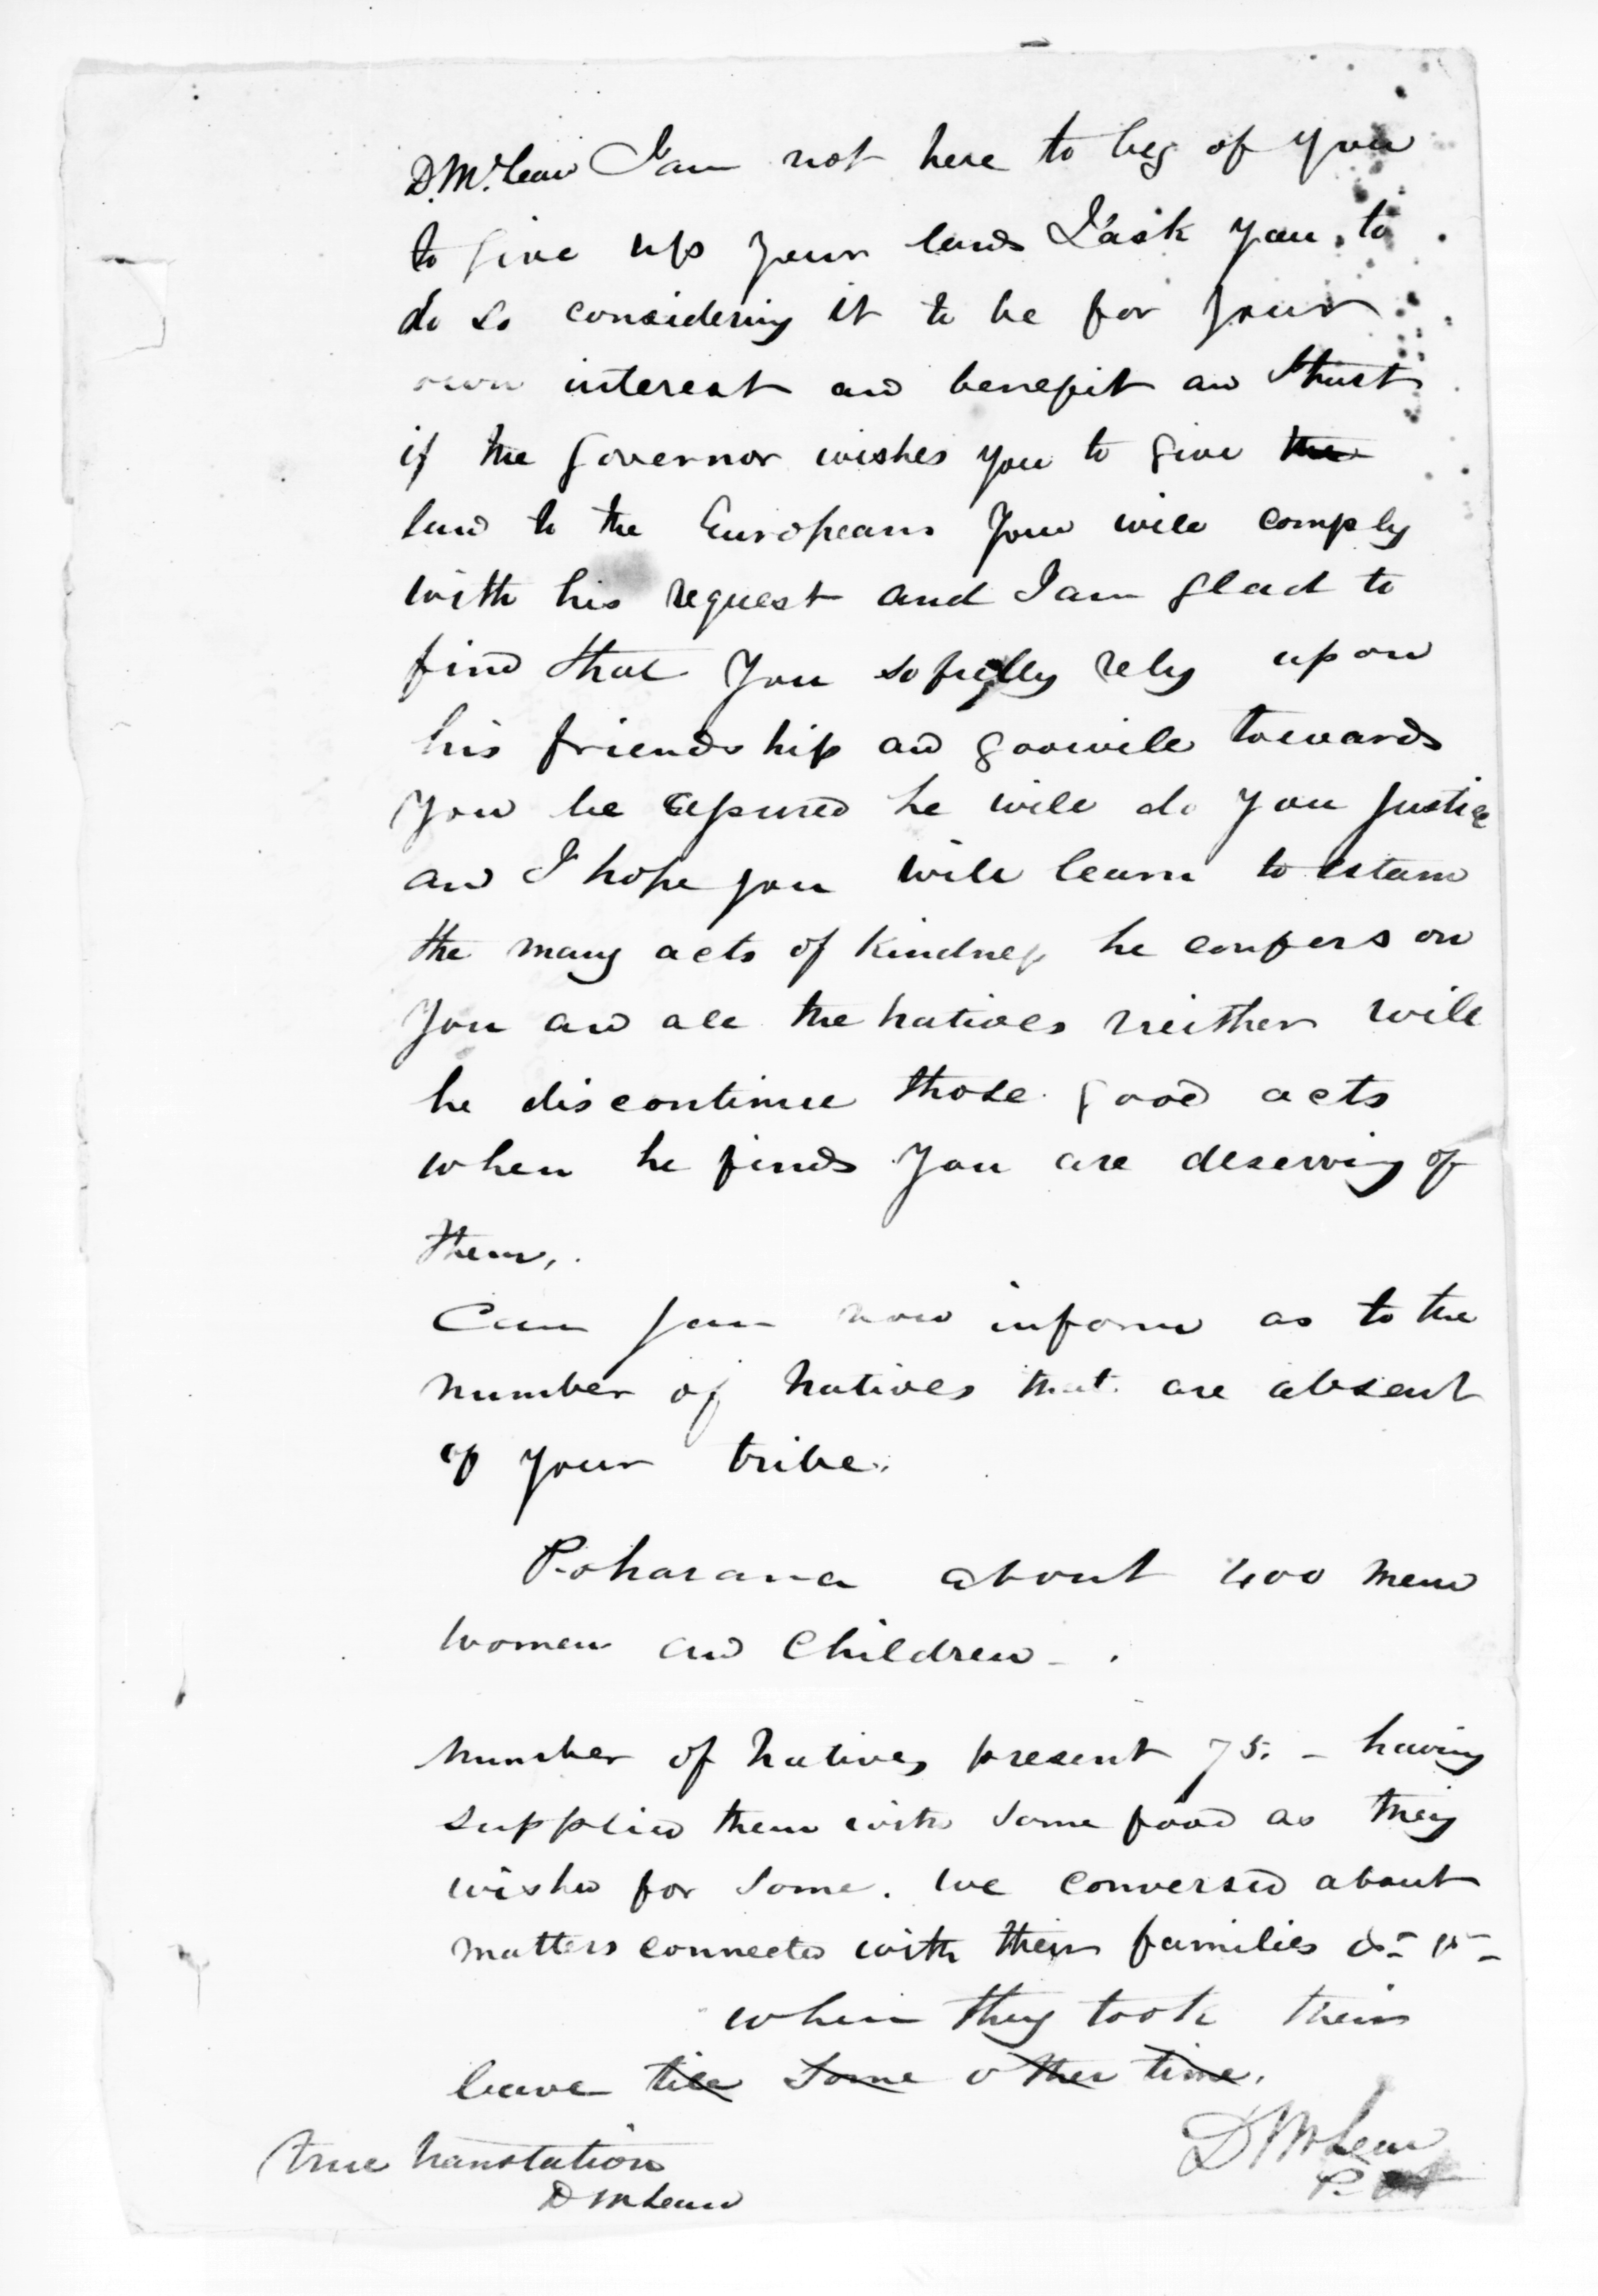 D. McLean I am not here to beg of you
to give up your lands I ask you to
do so considering it to be for your
own interest and benefit and I trust
if the Governor wishes you to give the
land to the Europeans you will comply
with his request and I am glad to
find that you so fully rely upon
his friendship and goodwill towards
you be assured he will do you justice
and I hope you will learn to esteem
the many acts of kindness he confers on
you and all the natives neither will
he discontinue those good acts
when he finds you are deserving of
them,.
Can you now inform as to the
number of natives that are absent
of your tribe.
Poharama about 400 men
women and children - .
Number of natives present 75. - having
supplied them with some food as they
wished for some. we conversed about
matters connected with their families &c &c
when they took their
leave till some other time.
True translation
D McLean
D McLean